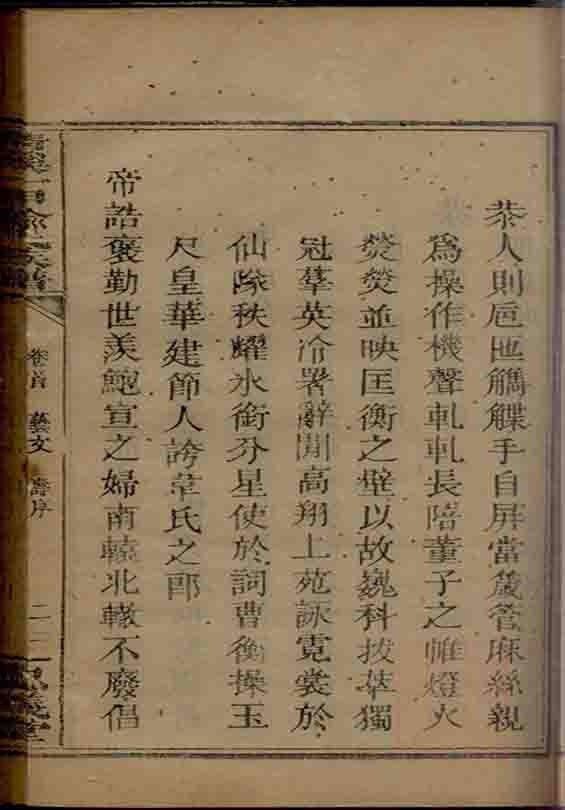 恭人則巵匜觿韘手自屏當箴管麻絲親
爲操作機聲軋軋長陪董子之帷燈火
熒熒並映匡衡之壁以故巍科拔萃獨
冠羣英冷署辭閒高翔上苑詠霓裳於
仙隊秩耀氷銜分星使於詞曹衡操玉
尺皇華建節人誇韋氏之郎
帝誥褒勤世羡鮑宣之婦南轅北轍不廢倡
卷首 藝文 壽序